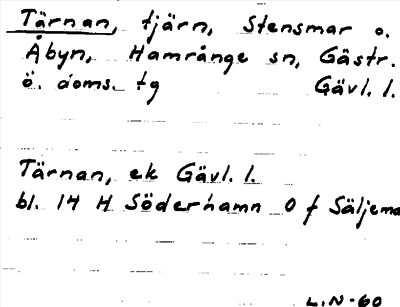 Tärnan, tjärn, Stensmar o.
Åbyn, Hamrånge sn, Gästr.
ö. doms. tg Gävl. l.
Tärnan, ek Gävl. l.
bl. 14 H Söderhamn O f Säljema
L.N-60